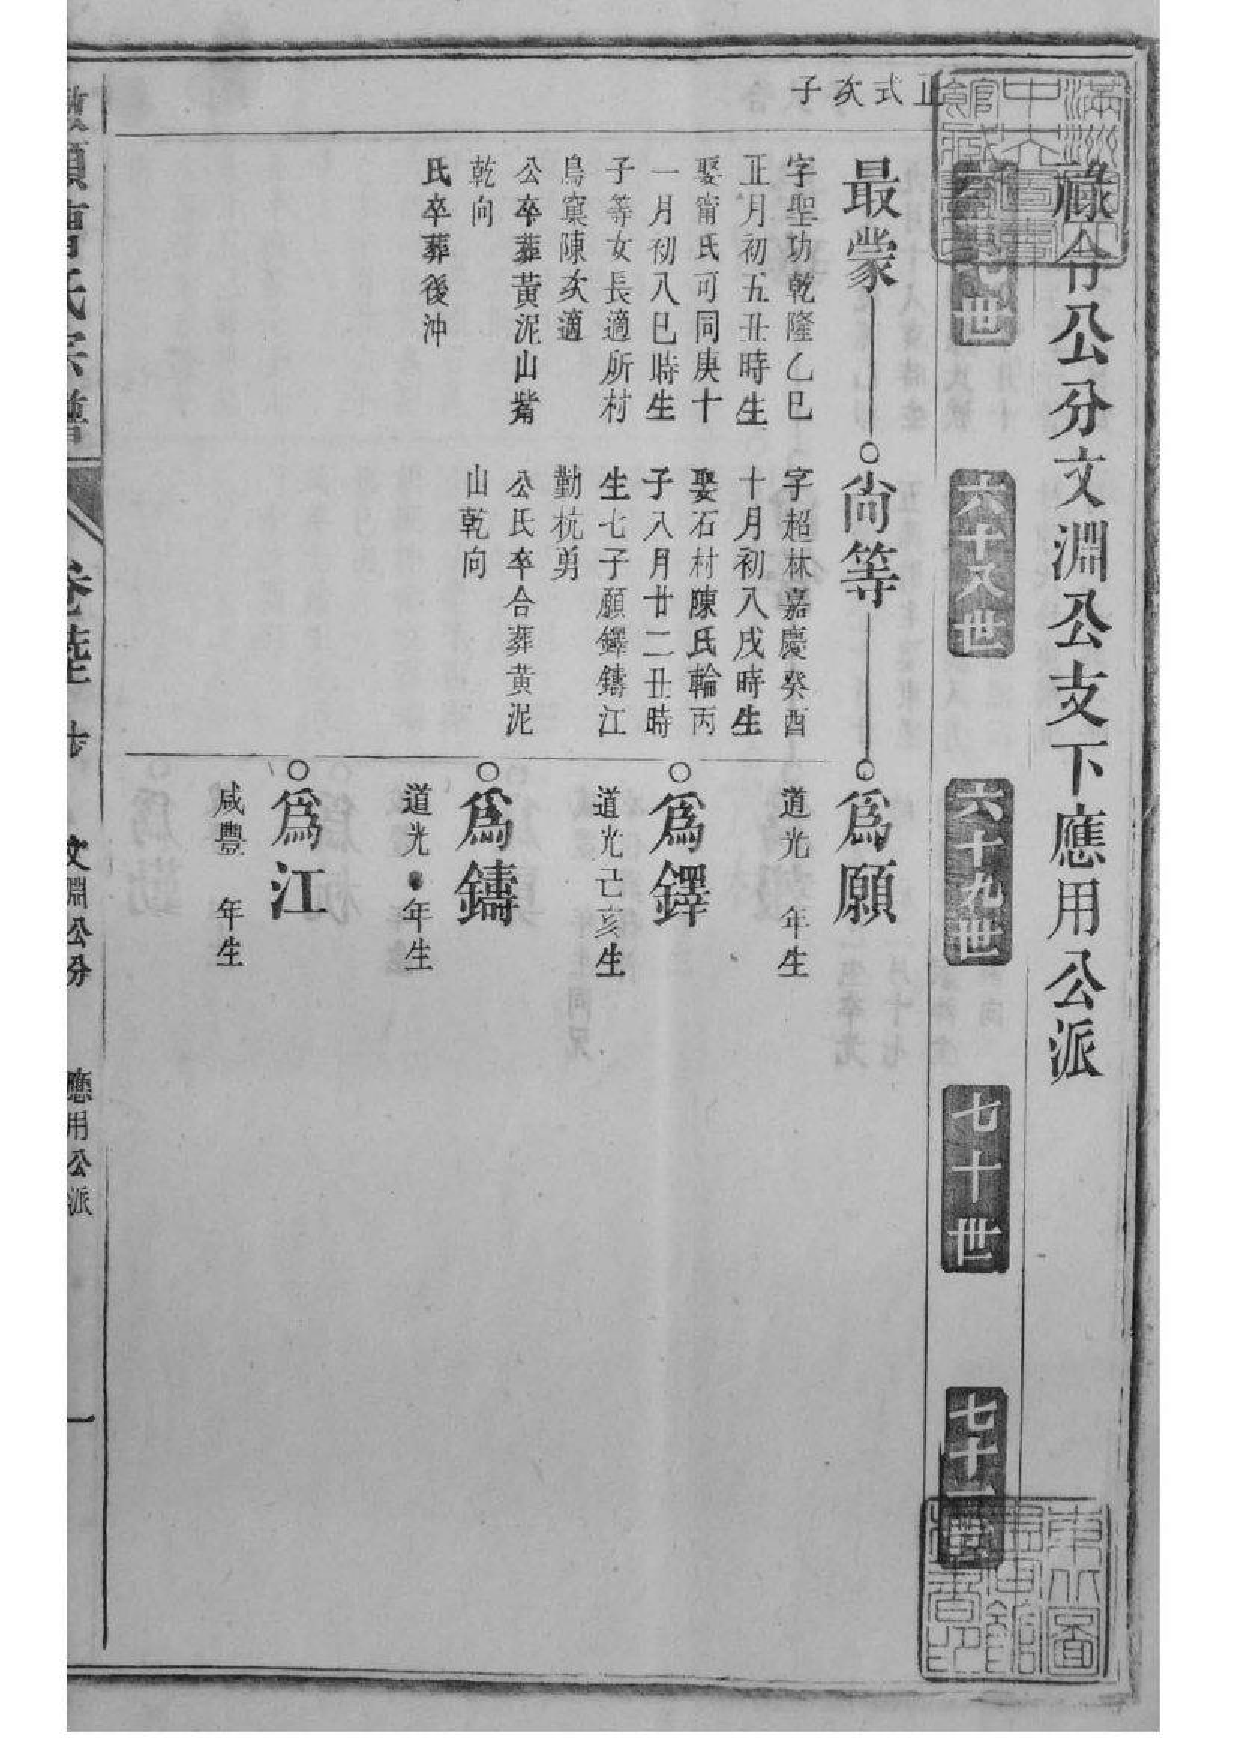 祿令公分文淵公支下應用公派
世
六十八世
六十九世
七十世
七十一世
正式次子
最蒙
字聖功乾隆乙巳
正月初五丑時生
娶甯氏可同庚十
一月初八巳時生
子等女長適所村
鳥窠陳次適
公卒葬黃泥山觜
乾向
氏卒葬後沖
尙等
字超林嘉慶癸酉
十月初八戌時生
娶石村陳氏輪丙
子八月廿二丑時
生七子願鐸鑄江
勤杭勇
公氏卒合葬黃泥
山乾向
爲願
道光 年生
爲鐸
道光己亥生
爲鑄
道光 年生
爲江
咸豐 年生
氏宗譜
卷陸
文淵公分
應用公派
一